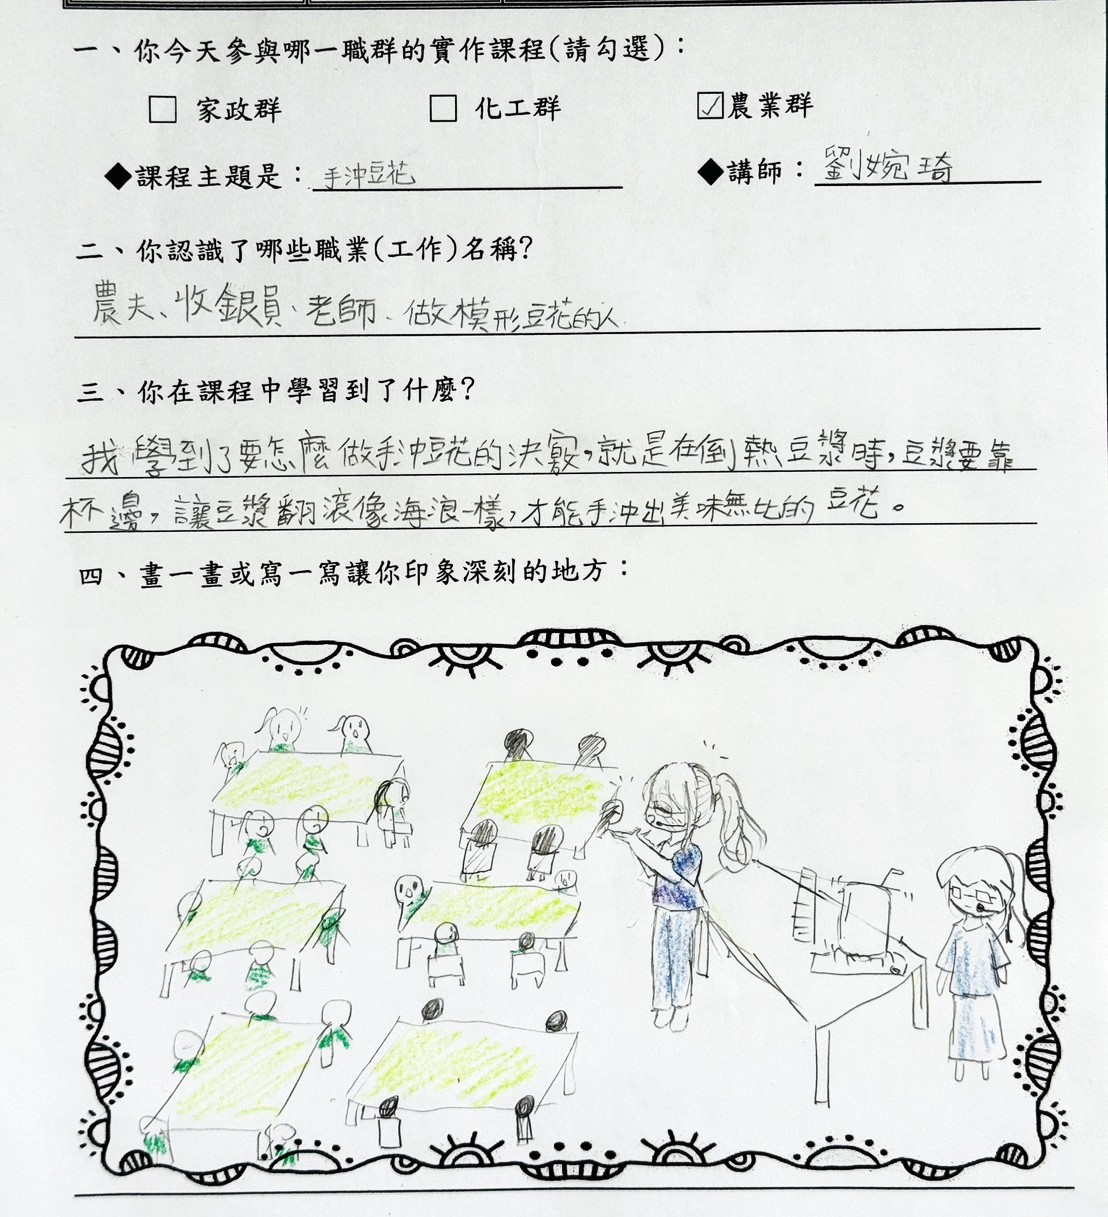 一、你今天參與哪一職群的實作課程(請勾選)：
□ 家政群 □ 化工群 ☑農業群
◆課程主題是：手沖豆花 ◆講師：劉婉琦
二、你認識了哪些職業(工作)名稱?
農夫、收銀員、老師、做模形豆花的人
三、你在課程中學習到了什麼?
我學到了要怎麼做手沖豆花的決竅，就是在倒熱豆漿時，豆漿要靠
杯邊，讓豆漿翻滾像海浪一樣，才能手沖出美味無比的豆花。
四、畫一畫或寫一寫讓你印象深刻的地方：